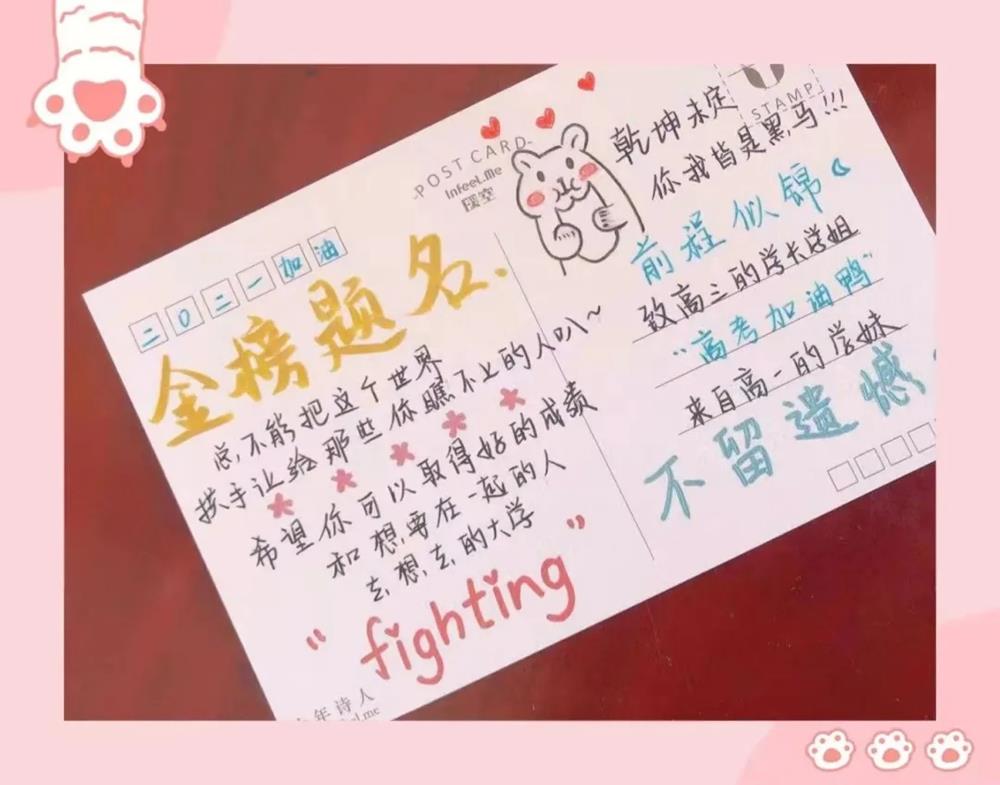 POST CARD
InFeeL.Me
STAMP
二〇二一加油
金榜题名.
总不能把这个世界
拱手让给那些你瞧不上的人叭~
希望你可以取得好的成绩
和想要在一起的人
去想去的大学
"fighting"
年诗人
乾坤未定
你我皆是黑马!!!
前程似锦
致高三的学长学姐
"高考加油鸭"
来自高一的学妹
不留遗憾